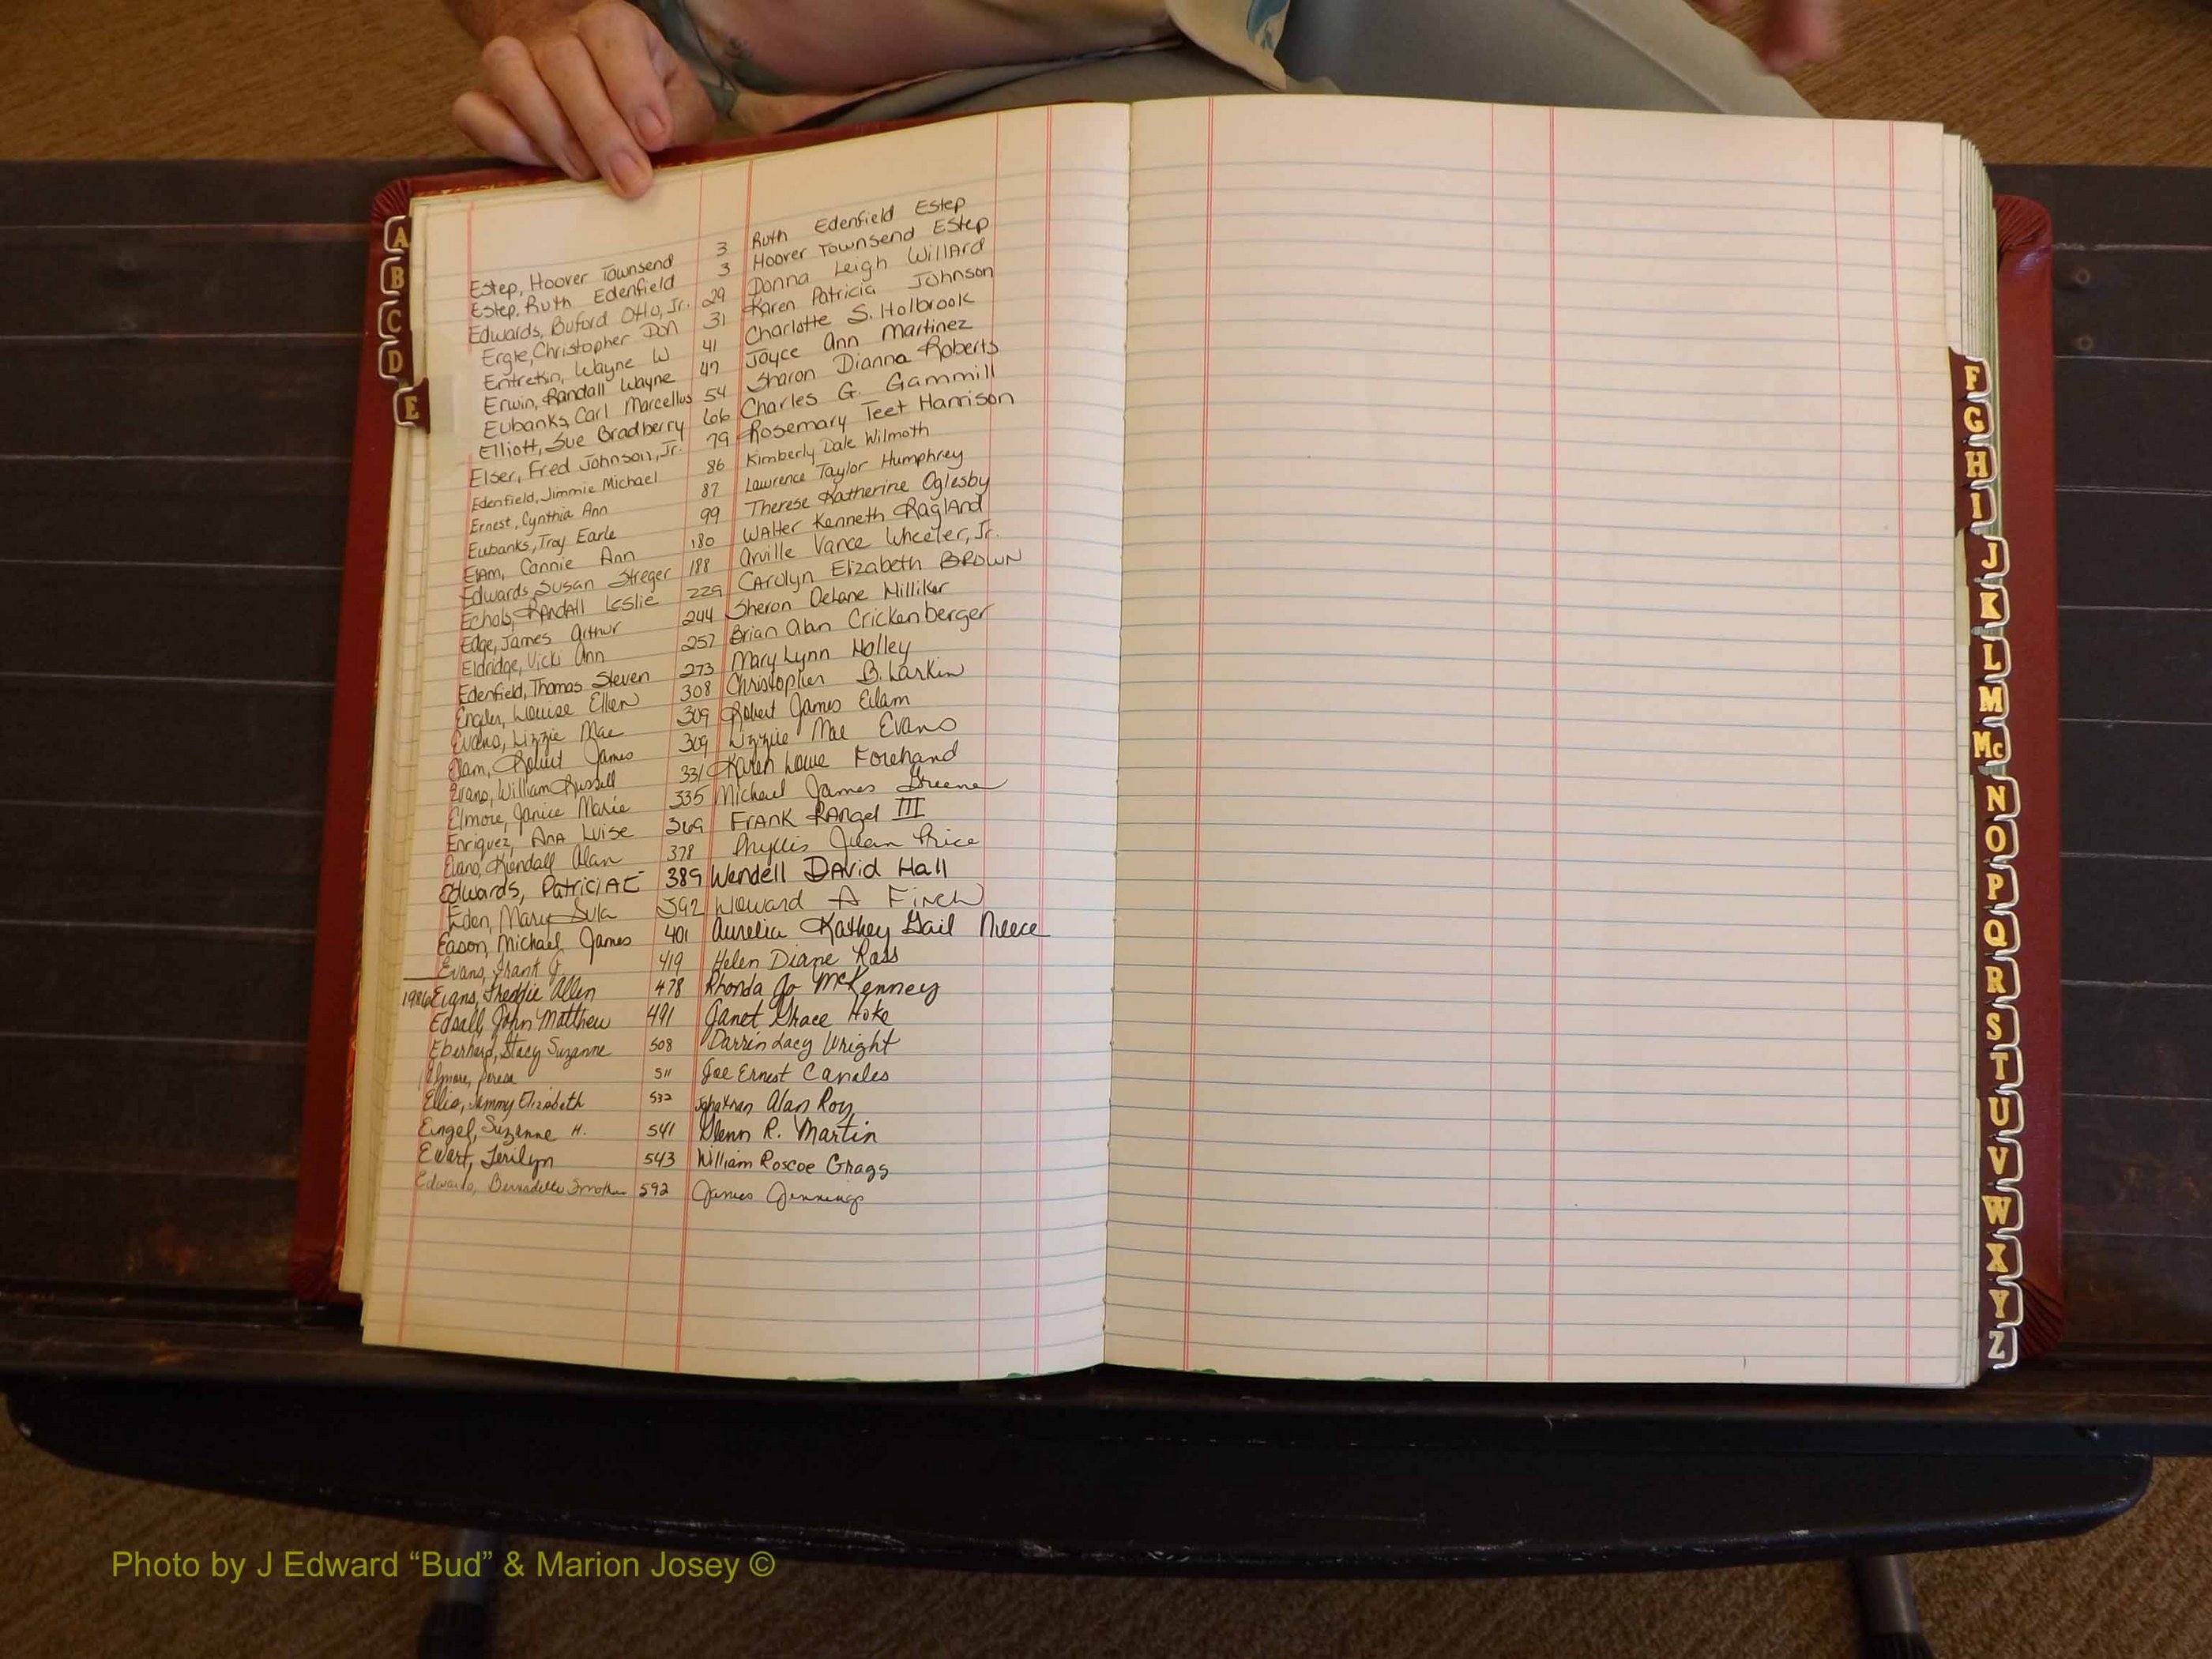 Estep, Hoover Townsend 3 Ruth Edenfield Estep
Estep, Ruth Edenfield 3 Hoover Townsend Estep
Edwards, Buford Otto, Jr. 29 Donna Leigh Willard
Ergle, Christopher Don 31 Karen Patricia Johnson
Entrekin, Wayne W 41 Charlotte S. Holbrook
Erwin, Randall Wayne 47 Joyce Ann Martinez
Eubanks, Carl Marcellus 54 Sharon Dianna Roberts
Elliott, Sue Bradberry 66 Charles G. Gammill
Elser, Fred Johnson, Jr. 79 Rosemary Teet Harrison
Edenfield, Jimmie Michael 86 Kimberly Dale Wilmoth
Ernest, Cynthia Ann 87 Lawrence Taylor Humphrey
Eubanks, Troy Earle 99 Therese Katherine Oglesby
Elam, Connie Ann 180 Walter Kenneth Ragland
Edwards, Susan Streger 188 Arville Vance Wheeler, Jr.
Echols, Randall Leslie 229 Carolyn Elizabeth BROWN
Edge, James Arthur 244 Sheron Delane Milliker
Eldridge, Vicki Ann 257 Brian Alan Crickenberger
Edenfield, Thomas Steven 273 Mary Lynn Holley
Engler, Louise Ellen 308 Christopher B. Larkin
Evans, Lizzie Mae 309 Robert James Elam
Elam, Robert James 309 Lizzie Mae Evans
Evans, William Russell 331 Karen Lowe Forehand
Elmore, Janice Marie 335 Michael James Greene
Enriquez, Ana Luise 369 Frank Rangel III
Evans, Kendall Alan 378 Phyllis Jean Price
Edwards, Patricia E 389 Wendell David Hall
Eden, Mary Sula 392 Howard A Finch
Eason, Michael James 401 Aurelia Kathey Gail Neece
Evans, Frank 419 Helen Diane Ross
1986 Evans, Freddie Allen 478 Rhonda Jo McKenney
Edsall, John Matthew 491 Janet Grace Hoke
Eberhard, Stacy Suzanne 508 Darrin Lacy Wright
Elmore, Teresa 511 Joe Ernest Canales
Ellis, Tammy Elizabeth 532 Johathan Alan Roy
Engel, Suzanne H. 541 Glenn R. Martin
Ewart, Terilyn 543 William Roscoe Grags
Edwards, Bernadette 592 James Jennings
A
B
C
D
E
F
G
H
I
J
K
L
M
Mc
N
O
P
Q
R
S
T
U
V
W
X
Y
Z
Photo by J Edward “Bud” & Marion Josey ©